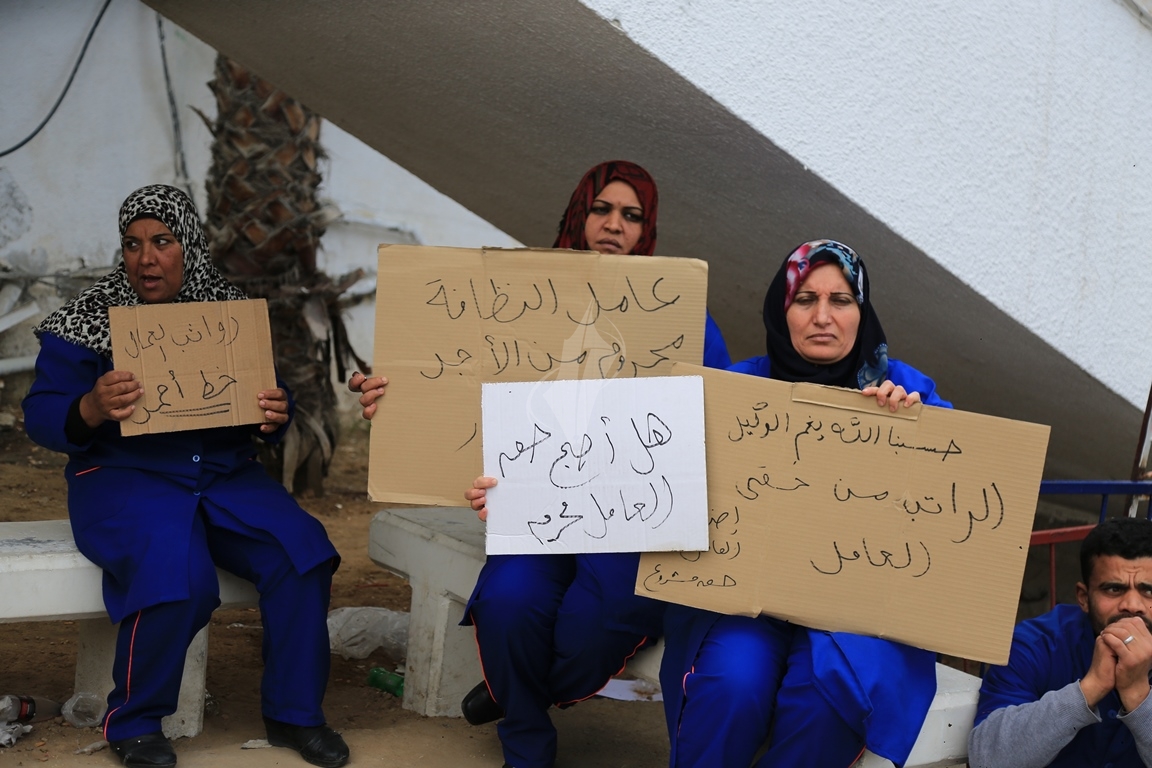 رواتب العمال
خط أحمر
عامل النظافة
محروم من الأجر
هل أصبح حقه
العامل محرم
حسبنا الله ونعم الوكيل
الراتب من حقي
العامل
حقه مشروع